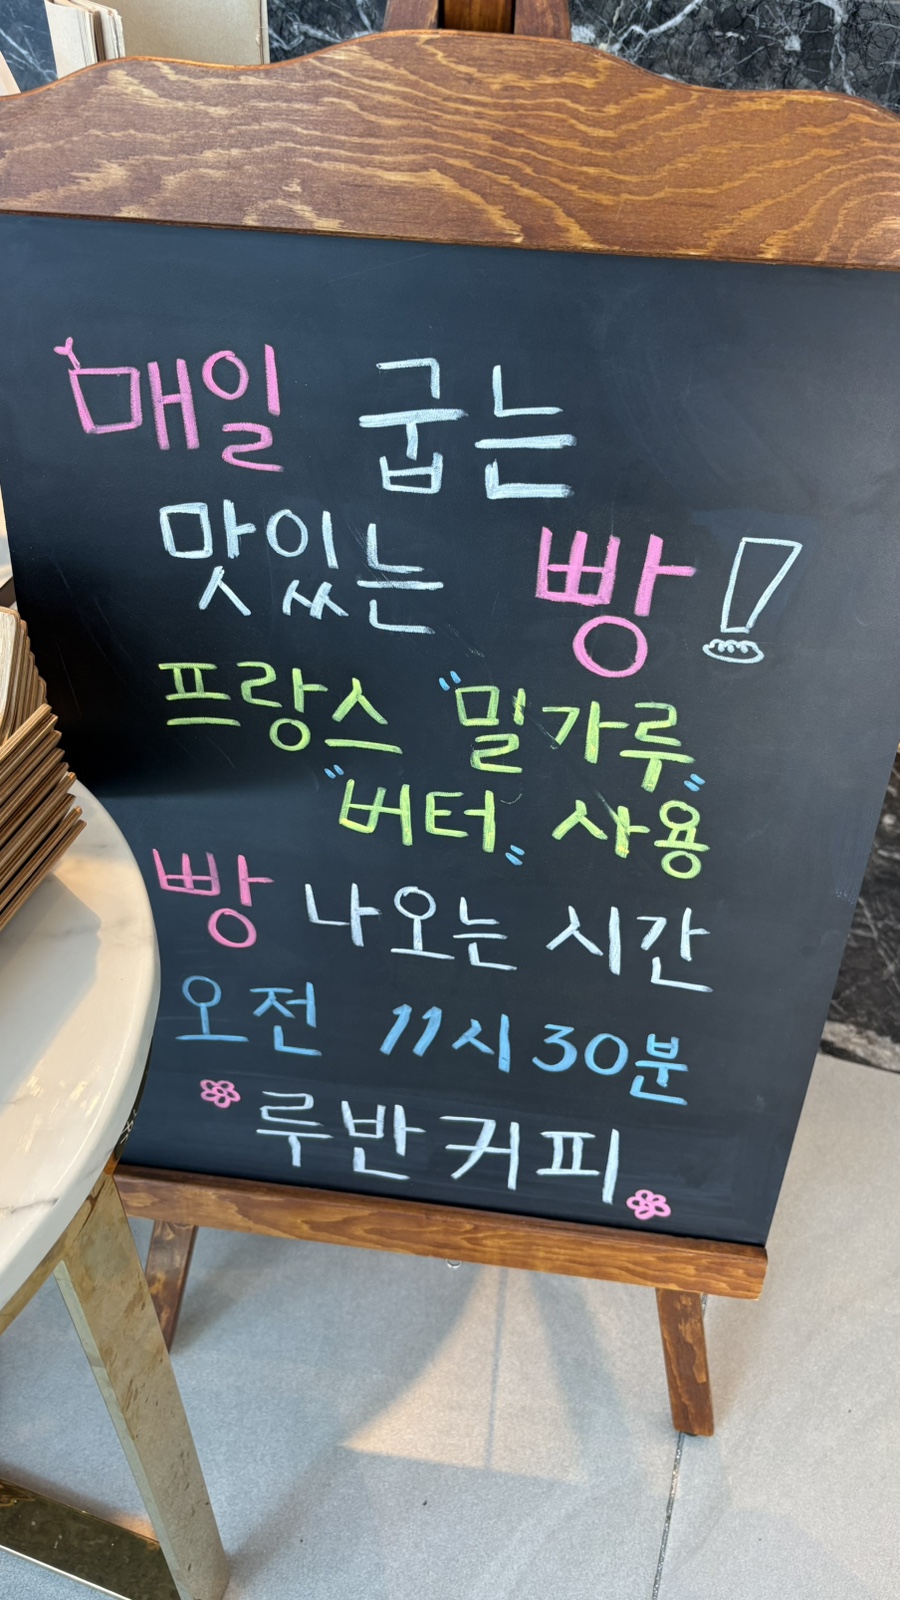 매일 굽는
맛있는 빵!
프랑스 "밀가루"
"버터" 사용
빵 나오는 시간
오전 11시30분
루반커피